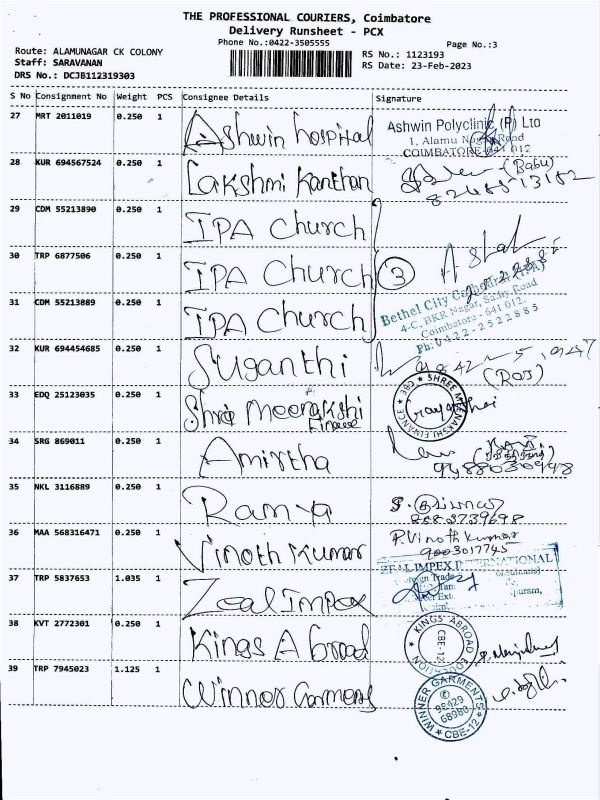 THE PROFESSIONAL COURIERS, Coimbatore
Delivery Runsheet - PCX
Phone No.:0422-3505555
Page No.:3
Route: ALAMUNAGAR CK COLONY
Staff: SARAVANAN
DRS No.: DCJB112319303
RS No.: 1123193
RS Date: 23-Feb-2023
S No Consignment No Weight PCS Consignee Details Signature
27 MRT 2011019 0.250 1 Ashwin hospital
Ashwin Polyclinic (P) Ltd
1, Alamu Nagar Road
COIMBATORE-641 012
28 KUR 694567524 0.250 1 Lakshmi Kanthan (Babu)
29 CDM 55213890 0.250 1 IPA Church
30 TRP 6877506 0.250 1 IPA Church 3
31 CDM 55213889 0.250 1 IPA Church
Bethel City
4-C, HKR Nagar, Sathy Road
Coimbatore - 641 012.
Ph: 0422-2522885
32 KUR 694454685 0.250 1 Suganthi
33 EDQ 25123035 0.250 1 Shree Meenakshi
Finance
SHREE MEENAKSHI FINANCE CBE
34 SRG 869011 0.250 1 Amirtha
9488030948
35 NKL 3116889 0.250 1 Ramya
36 MAA 568316471 0.250 1 Vinoth Kumar P.Vinoth Kumar
9003017745
37 TRP 5837653 1.035 1 Zeal Impex
ZEAL IMPEX INTERNATIONAL
38 KVT 2772301 0.250 1 Kings Abroad
KINGS ABROAD EDUCATION CBE-12
39 TRP 7945023 1.125 1 Winner Garments
WINNER GARMENTS CBE-12